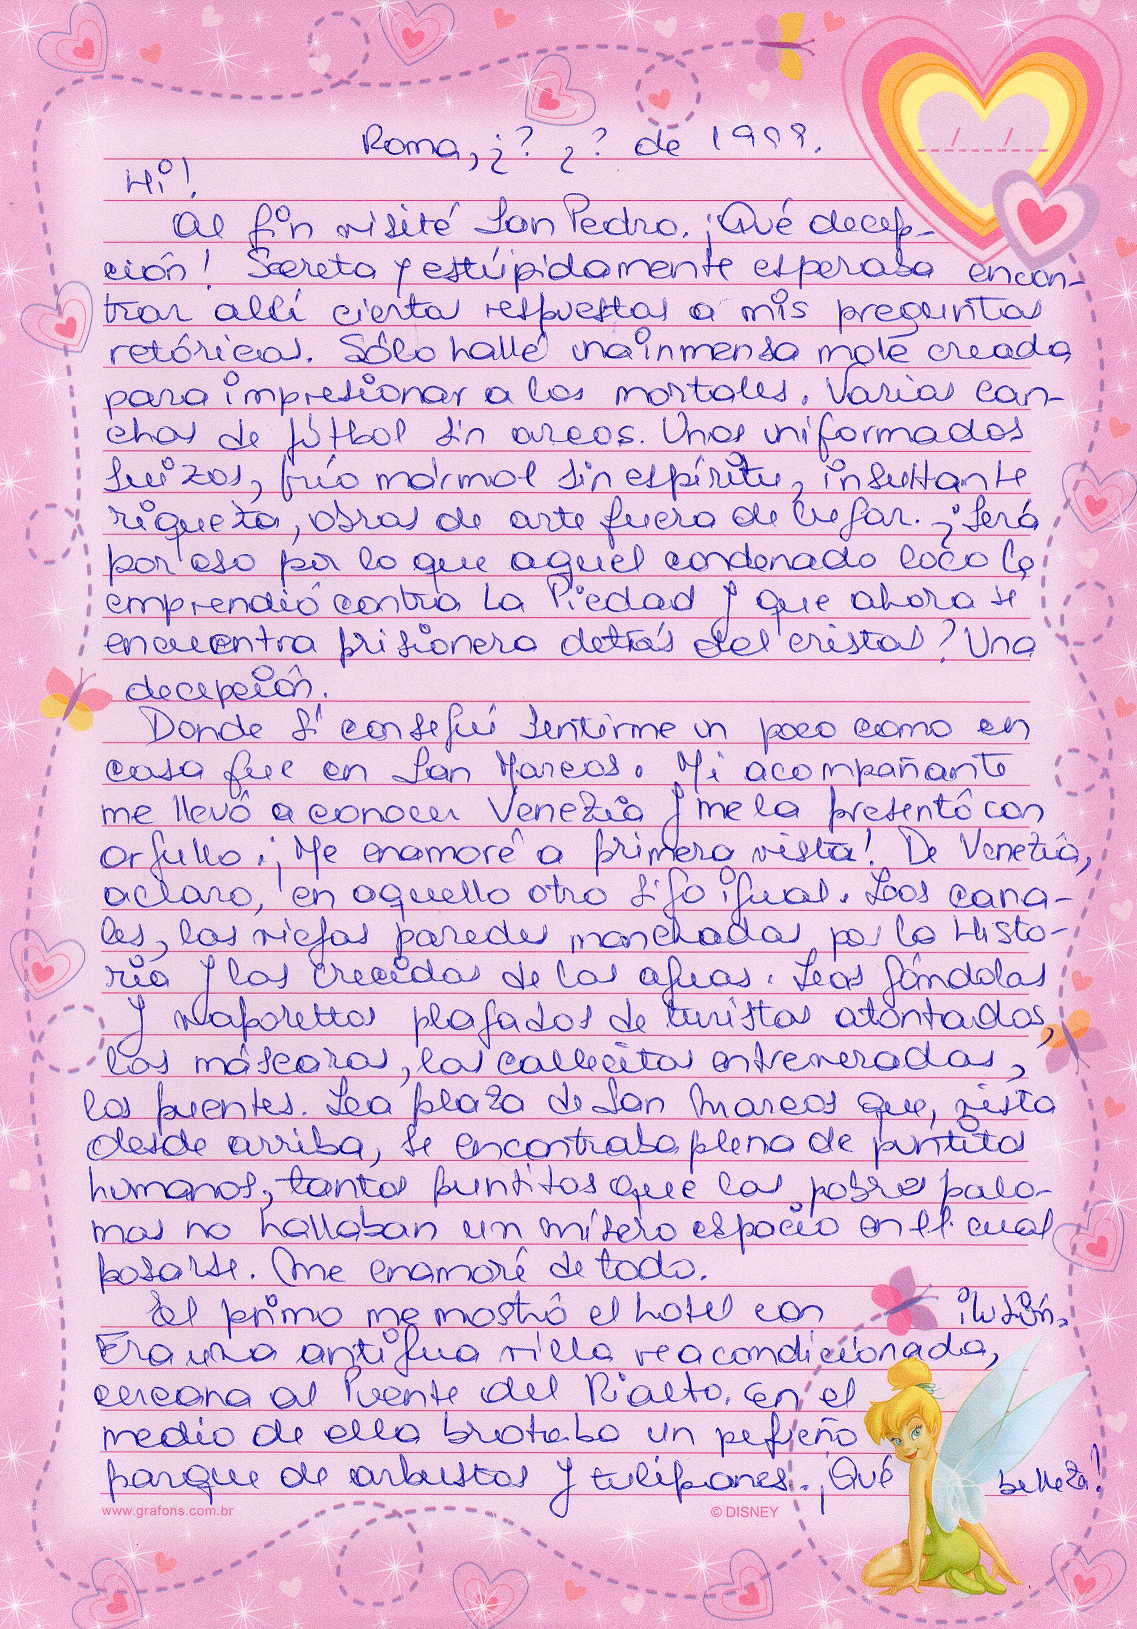 Roma, ¿? ¿? de 1998.
/ /
Hi!
Al fin visité San Pedro. ¡Qué decep-
ción! Secreta y estúpidamente esperaba encon-
trar allí ciertas respuestas a mis preguntas
retóricas. Sólo hallé una inmensa mole creada
para impresionar a los mortales. Varias can-
chas de fútbol sin arcos. Unos uniformados
suizos, frío mármol sin espíritu, insultante
riqueza, obras de arte fuera de lugar. ¿Será
por eso por lo que aquel condenado loco la
emprendió contra La Piedad y que ahora se
encuentra prisionera detrás del cristal? Una
decepción.
Donde sí conseguí sentirme un poco como en
casa fue en San Marcos. Mi acompañante
me llevó a conocer Venezia y me la presentó con
orgullo. ¡Me enamoré a primera vista! De Venezia,
aclaro, en aquello otro sigo igual. Los cana-
les, las viejas paredes manchadas por la Histo-
ria y las crecidas de las aguas. Las góndolas
y vaporettos plagados de turistas atontados,
las máscaras, las callecitas entreveradas,
los puentes. La plaza de San Marcos que, vista
desde arriba, se encontraba plena de puntitos
humanos, tantos puntitos que las pobres palo-
mas no hallaban un mísero espacio en el cual
posarse. Me enamoré de todo.
El primo me mostró el hotel con ilusión.
Era una antigua villa reacondicionada,
cercana al Puente del Rialto. En el
medio de ella brotaba un pequeño
parque de arbustos y tulipanes. ¡Qué belleza!
www.grafons.com.br © DISNEY